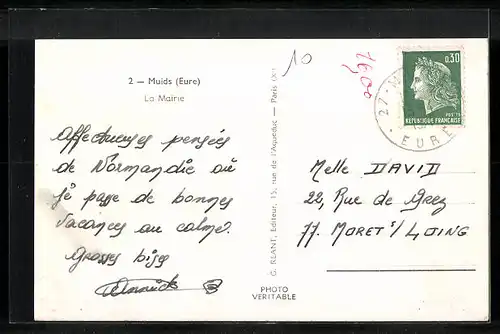 2 — Muids (Eure)
La Mairie
Affectueuses pensées
de Normandie où
je passe de bonnes
vacances au calme.
Grosses bises
Annick B
G. RÉANT, Éditeur, 15, rue de l'Aqueduc — Paris (X)
PHOTO
VERITABLE
10
1600
0,30
POSTES
REPUBLIQUE FRANÇAISE
27 - M
EURE
Melle DAVID
22, Rue de Grez
77. MORET s/ LOING